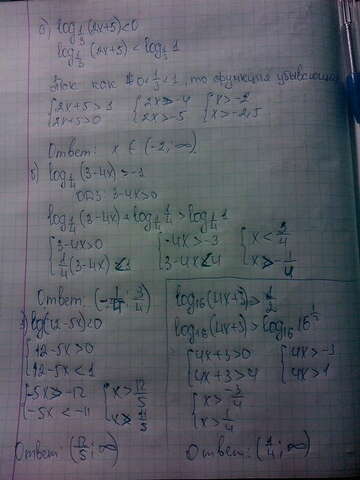 б) log_{1/3}(2x+5)<0
log_{1/3}(2x+5) < log_{1/3} 1
Так как 0<1/3<1, то функция убывающая
{2x+5>1 {2x>-4 {x>-2
{2x+5>0 {2x>-5 {x>-2,5
Ответ: x ∈ (-2; ∞)
б) log_{1/4}(3-4x)>-1
ОДЗ: 3-4x>0
log_{1/4}(3-4x)+log_{1/4} 1/4 > log_{1/4} 1
{3-4x>0 {-4x>-3 {x< 3/4
{1/4(3-4x)<1 {3-4x<4 {x>-1/4
Ответ: (-1/4; 3/4)
log(12-5x)<0
{12-5x>0
{12-5x<1
{-5x>-12 {x> 12/5
{-5x<-11 {x> 11/5
Ответ: (12/5; ∞)
log₁₆(4x+3)> 1/2
log₁₆(4x+3)>log₁₆ 16^{1/2}
{4x+3>0 {4x>-3
{4x+3>4 {4x>1
{x>-3/4
{x>1/4
Ответ: (1/4; ∞)